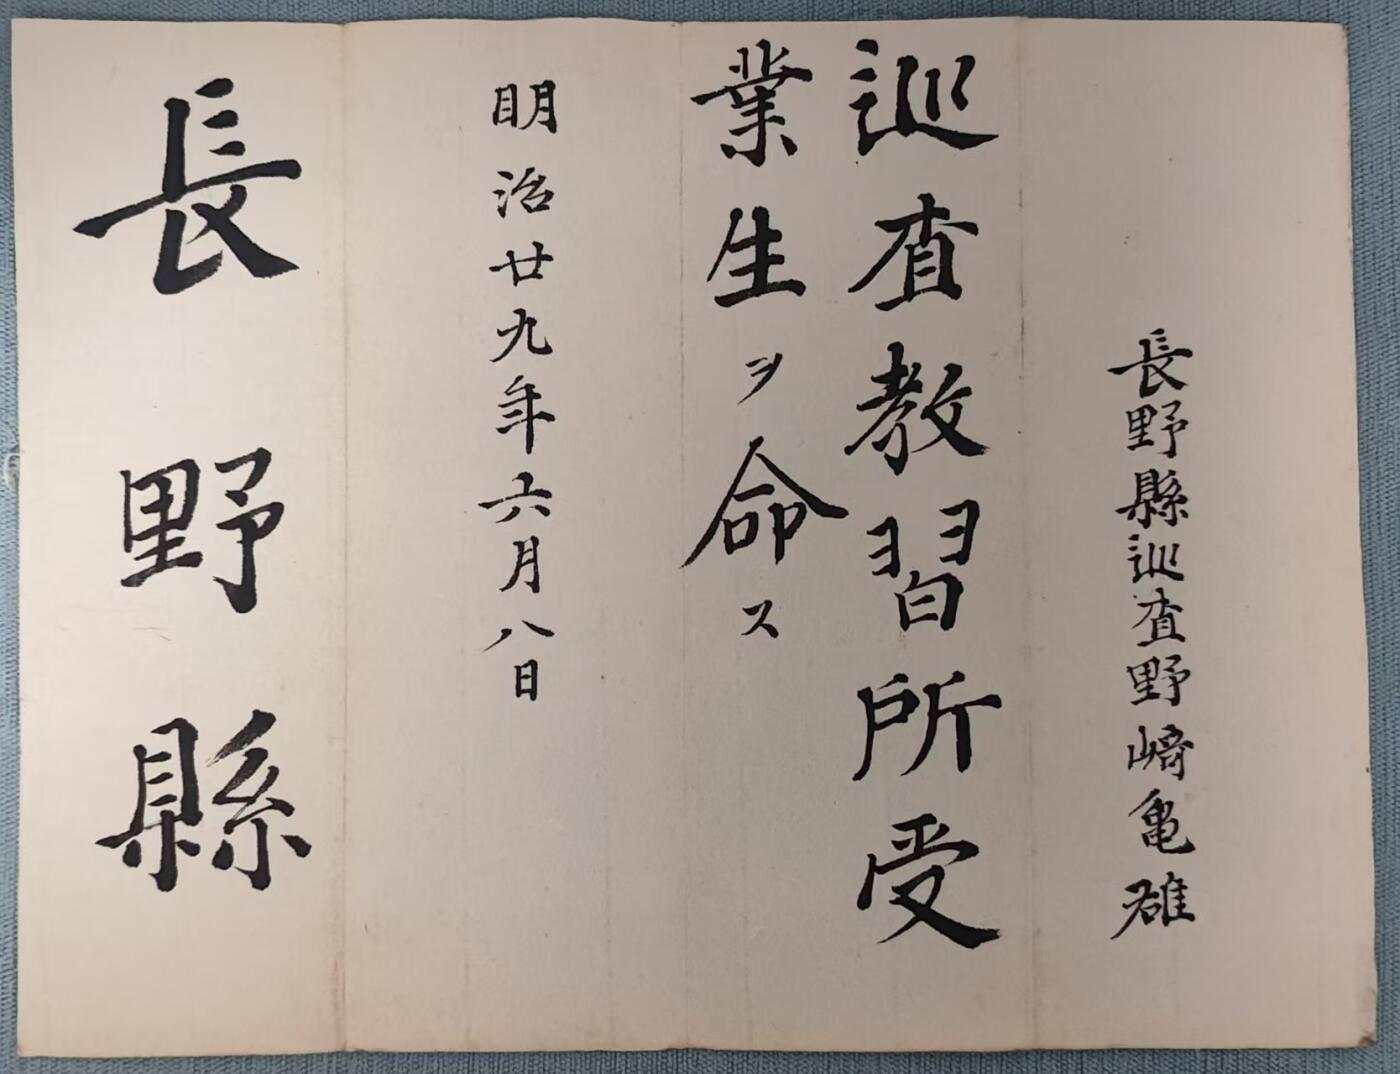 長野縣巡査野﨑亀雄
巡査教習所受
業生ヲ命ス
明治廿九年六月八日
長野縣